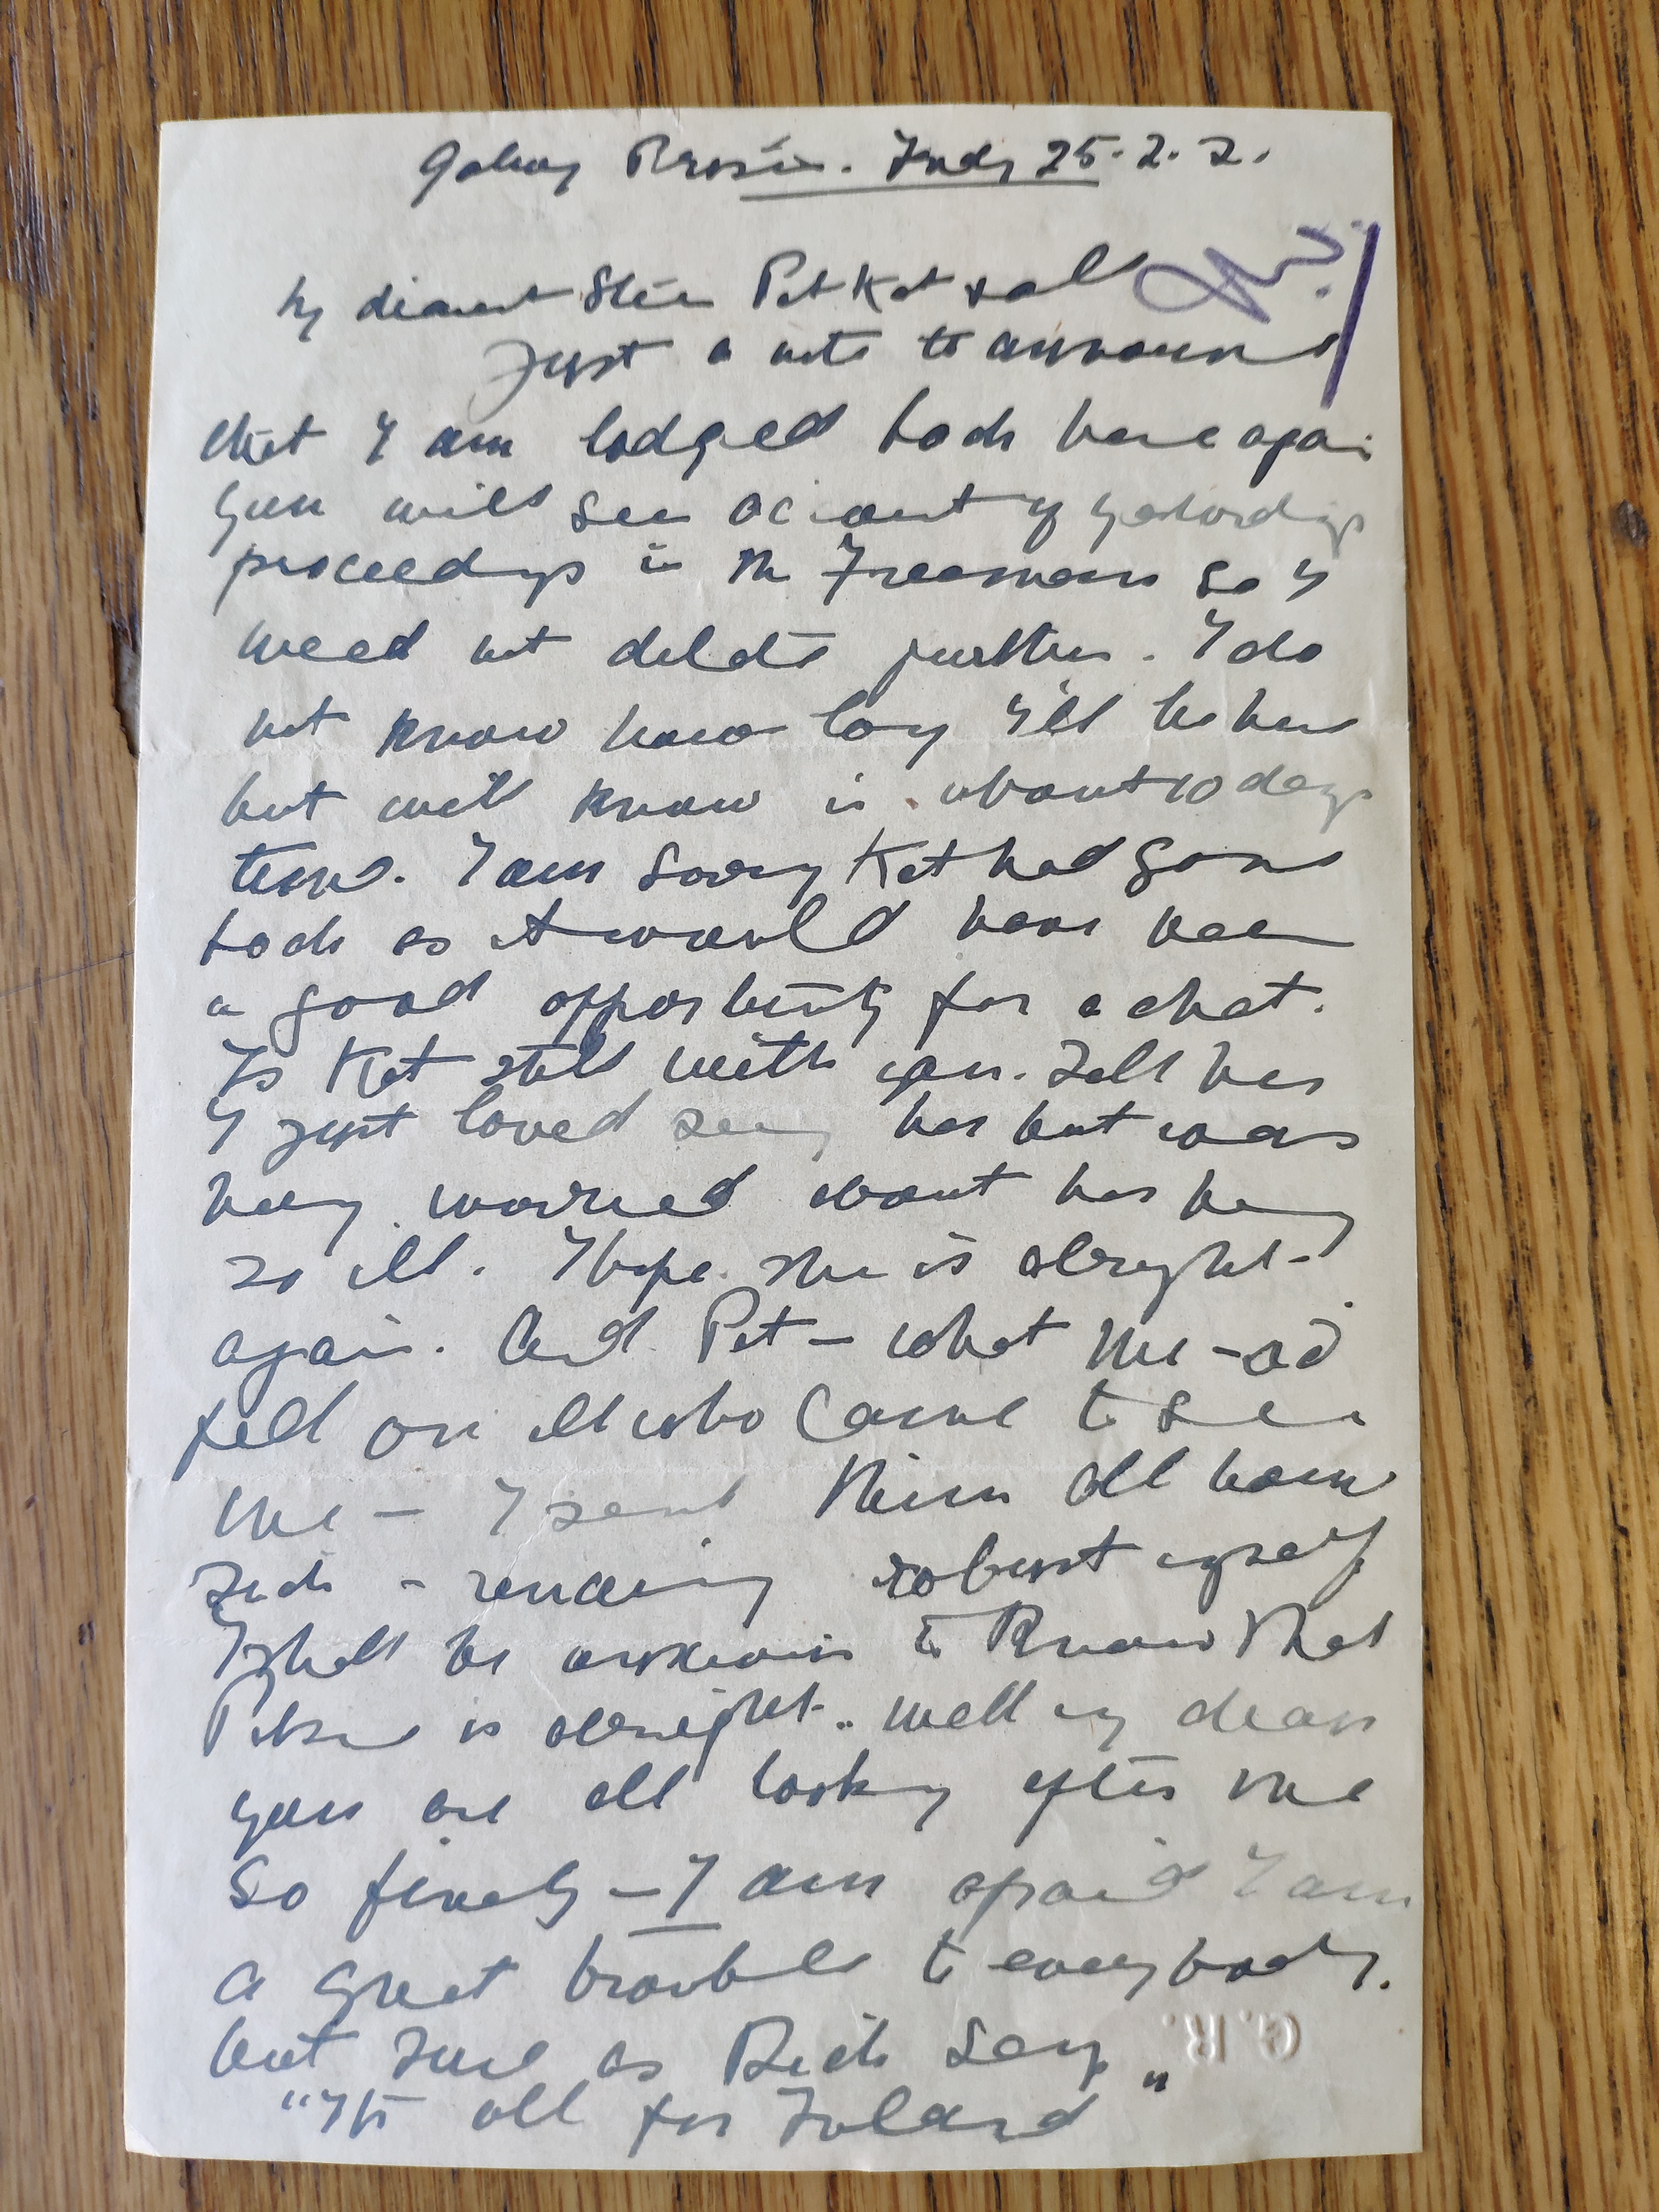 Galway Prison. Friday 25.2.2.
My dearest Pet Kat & all
Just a note to announce
that I am lodged back here again
You will see account of yesterdays
proceedings in the Freemans so I
need not dilate further. I do
not know how long I'll be here
but will know in about 10 days
time. I am sorry Kat had gone
back as it would have been
a good opportunity for a chat.
Is Kat still with you. Tell her
I just loved seeing her but was
very worried about her being
so ill. I hope she is alright
again. And Pet — what
fell on all who came to see
me — I sent them all home
sick - remaining robust myself
I shall be anxious to know that
is alright. Well my dears
you are all looking after me
so finely — I am afraid I am
a great trouble to everybody.
but sure as Dick says
"Its all for Ireland"
G.R.